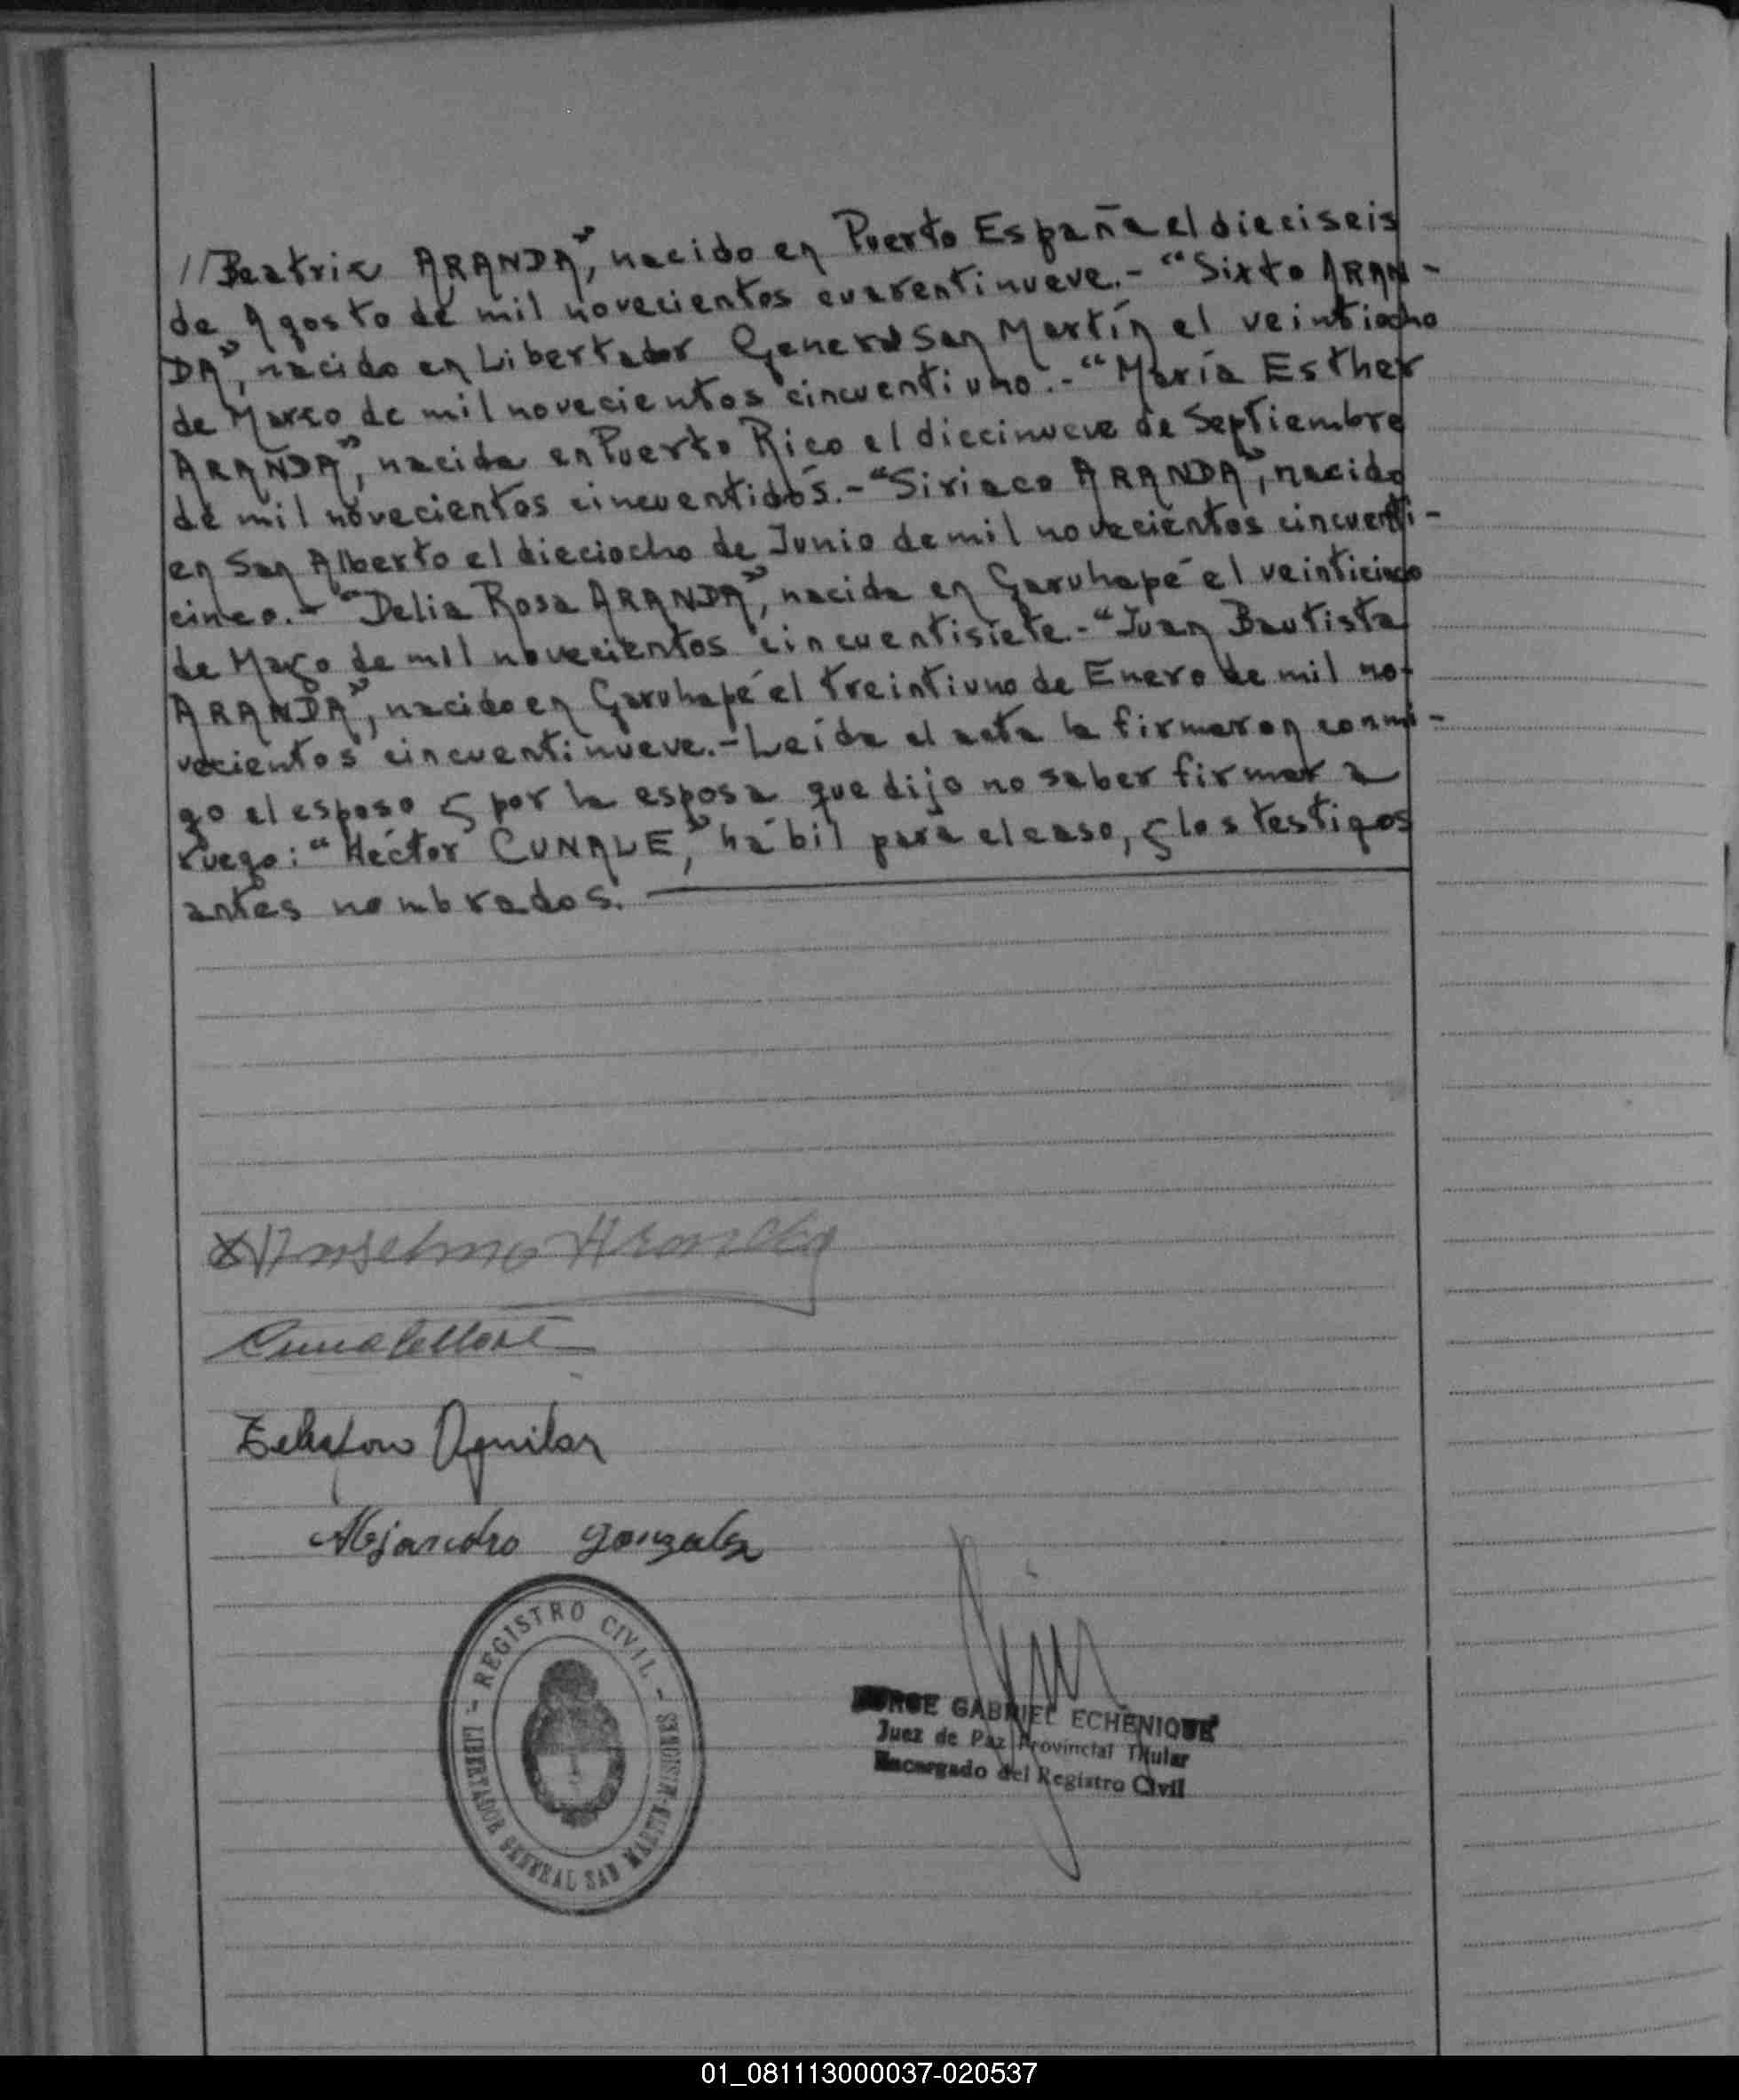 //Beatriz ARANDA", nacido en Puerto España el dieciseis
de Agosto de mil novecientos cuarentinueve.- "Sixto ARAN-
DA", nacido en Libertador General San Martín el veintiocho
de Marzo de mil novecientos cincuentiuno.- "María Esther
ARANDA", nacida en Puerto Rico el diecinueve de Septiembre
de mil novecientos cincuentidós.- "Siriaco ARANDA", nacido
en San Alberto el dieciocho de Junio de mil novecientos cincuenti-
cinco.- "Delia Rosa ARANDA", nacida en Garuhapé el veinticinco
de Mayo de mil novecientos cincuentisiete.- "Juan Bautista
ARANDA", nacido en Garuhapé el treintiuno de Enero de mil no-
vecientos cincuentinueve.- Leída el acta la firmaron conmi-
go el esposo y por la esposa que dijo no saber firmar a
ruego: "Héctor CUNALE", hábil para el caso, y los testigos
antes nombrados.
Anselmo Aranda
Aguilar
Alejandro Gonzalez
- REGISTRO CIVIL -
LIBERTADOR GENERAL SAN MARTIN-MISIONES
JORGE GABRIEL ECHENIQUE
Juez de Paz Provincial Titular
Encargado del Registro Civil
01_081113000037-020537